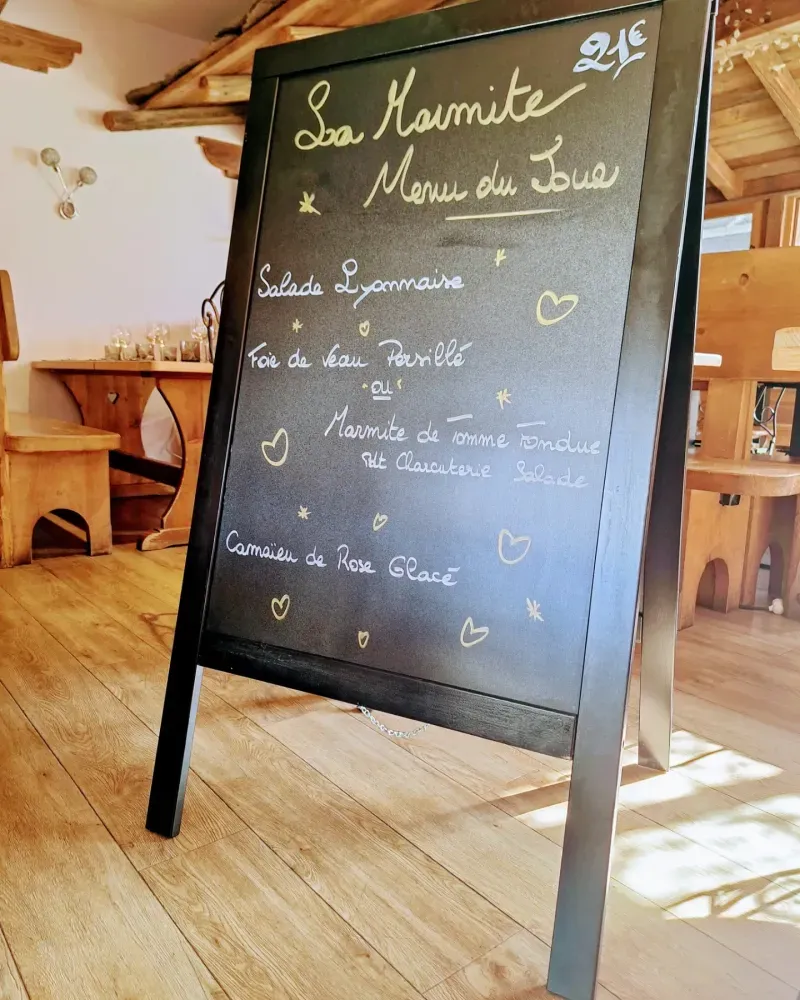 21€
La Marmite
Menu du Jour
Salade Lyonnaise
Foie de Veau Persillé
"ou"
Marmite de Tomme Fondue
Charcuterie Salade
Camaïeu de Rose Glacé